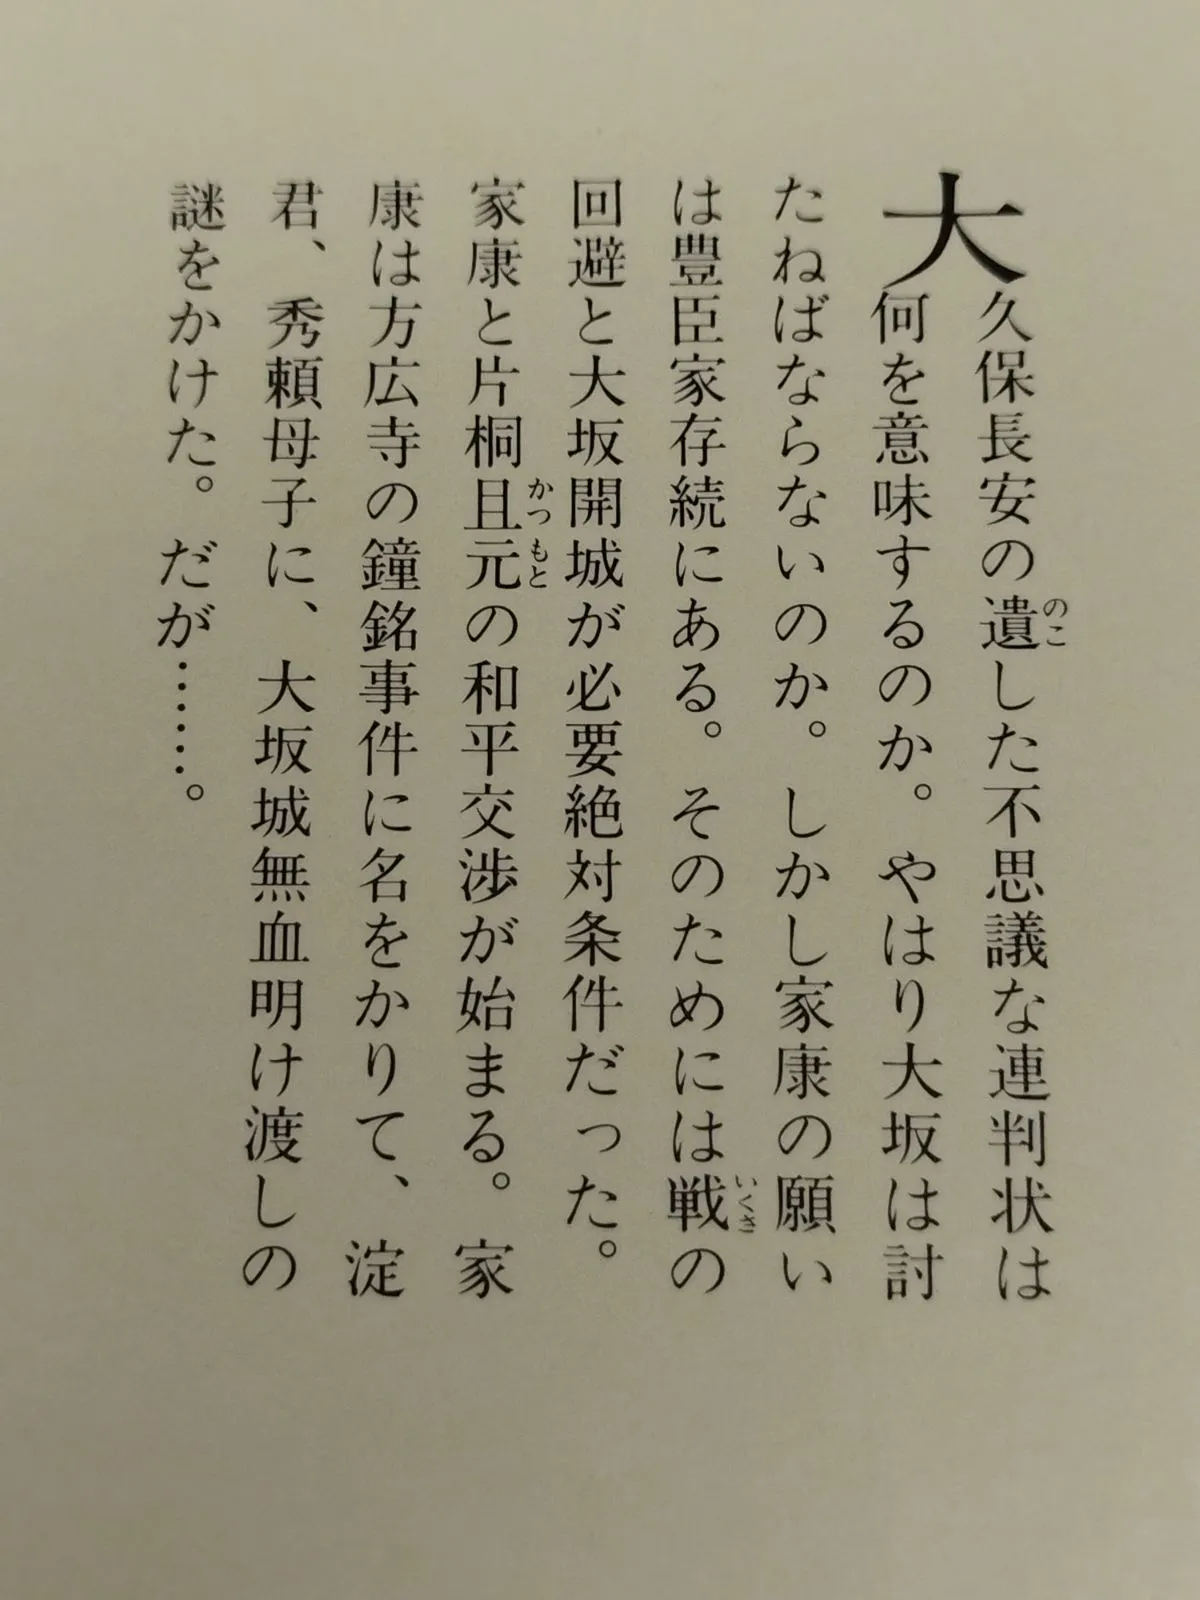 大久保長安の遺した不思議な連判状は
何を意味するのか。やはり大坂は討
たねばならないのか。しかし家康の願い
は豊臣家存続にある。そのためには戦の
回避と大坂開城が必要絶対条件だった。
家康と片桐且元の和平交渉が始まる。家
康は方広寺の鐘銘事件に名をかりて、淀
君、秀頼母子に、大坂城無血明け渡しの
謎をかけた。だが………。
のこ
いくさ
かつもと